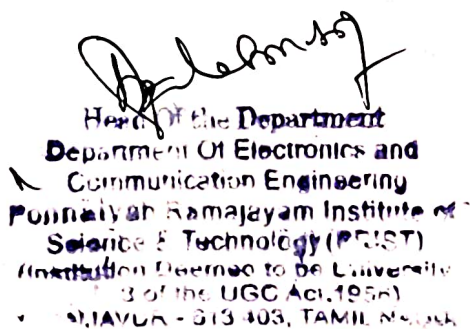 Head Of the Department
Department Of Electronics and
Communication Engineering
Ponnaiyah Ramajayam Institute of
Science & Technology (PRIST)
(Institution Deemed to be University
3 of the UGC Act, 1956)
- 613 403, TAMIL